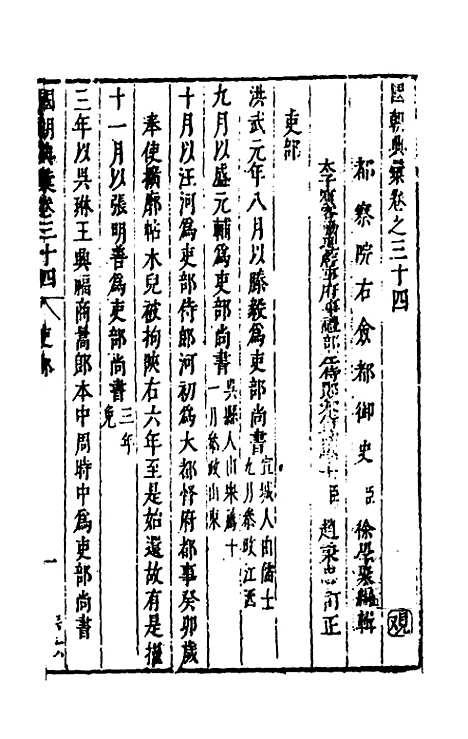 國朝典彙卷之三十四
都察院右僉都御史臣徐學聚編輯
太子賓客 詹事府事禮部左侍郎 臣趙秉忠訂正
吏部
洪武元年八月以滕毅為吏部尚書宣城人由儒士九月參政江西
九月以盛元輔為吏部尚書吳縣人由 薦十一月參政山東
十月以汪河為吏部侍郎河初為大都督府都事癸卯歲
奉使擴廓帖木兒被拘陝右六年至是始還故有是擢
十一月以張明善為吏部尚書三年免
三年以吳琳王興福商暠郎本中周時中為吏部尚書
國朝典彙卷三十四
吏部
一
观